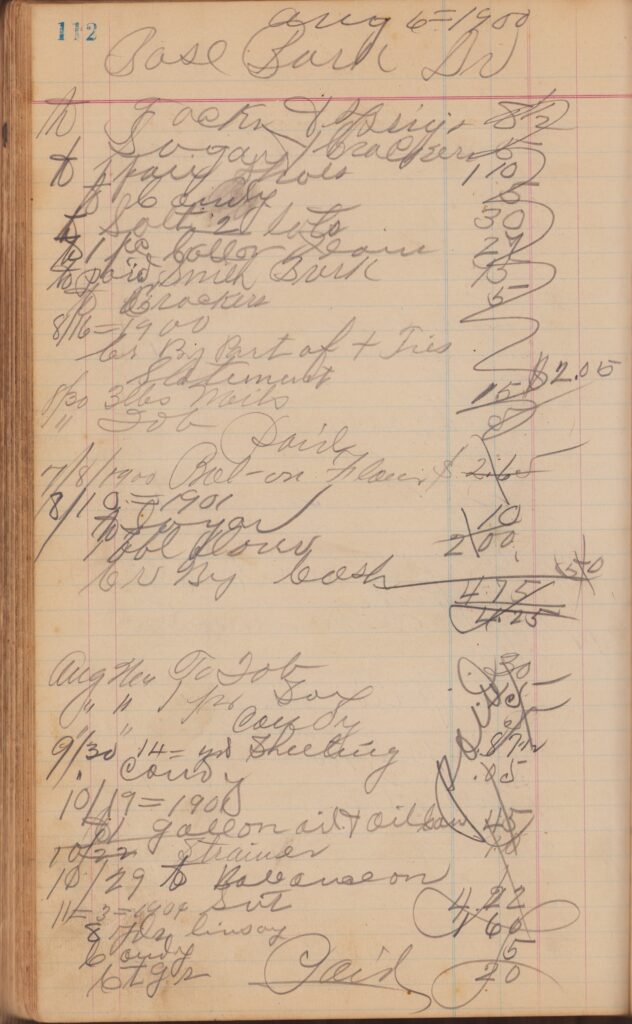 112
Aug 6=1900
Burk Dr
to Tacks & 8½
to Sugar & Crackers 15
to 1 pair Shoes 1 10
to Candy 5
to Salt 2 lots 30
to 1 pc 27
to paid Smith Burk 15
to Crackers 5
8/16=1900
Cr By Part of + Ties
Statement $2.05
8/30 3 lbs Nails 15
" Job
Paid
7/8/1900 Bal-on Flour $ 2.65
8/10=1901
to Sugar 10
1 bbl flour 2 00
Cr By Cash 50
4.75
4.25
Aug To Job 30
" " 1 pr Sox 15
" " Candy
9/30 14= yd Sheeting .87½
" Candy .05
Paid
10/19=190
to 1 gallon oil & oil can 45
10/22 Strainer 10
10/29 to Balance on
Sut 4.22
11=3=190
8 yds linsay 1 60
Candy 5
20
Paid